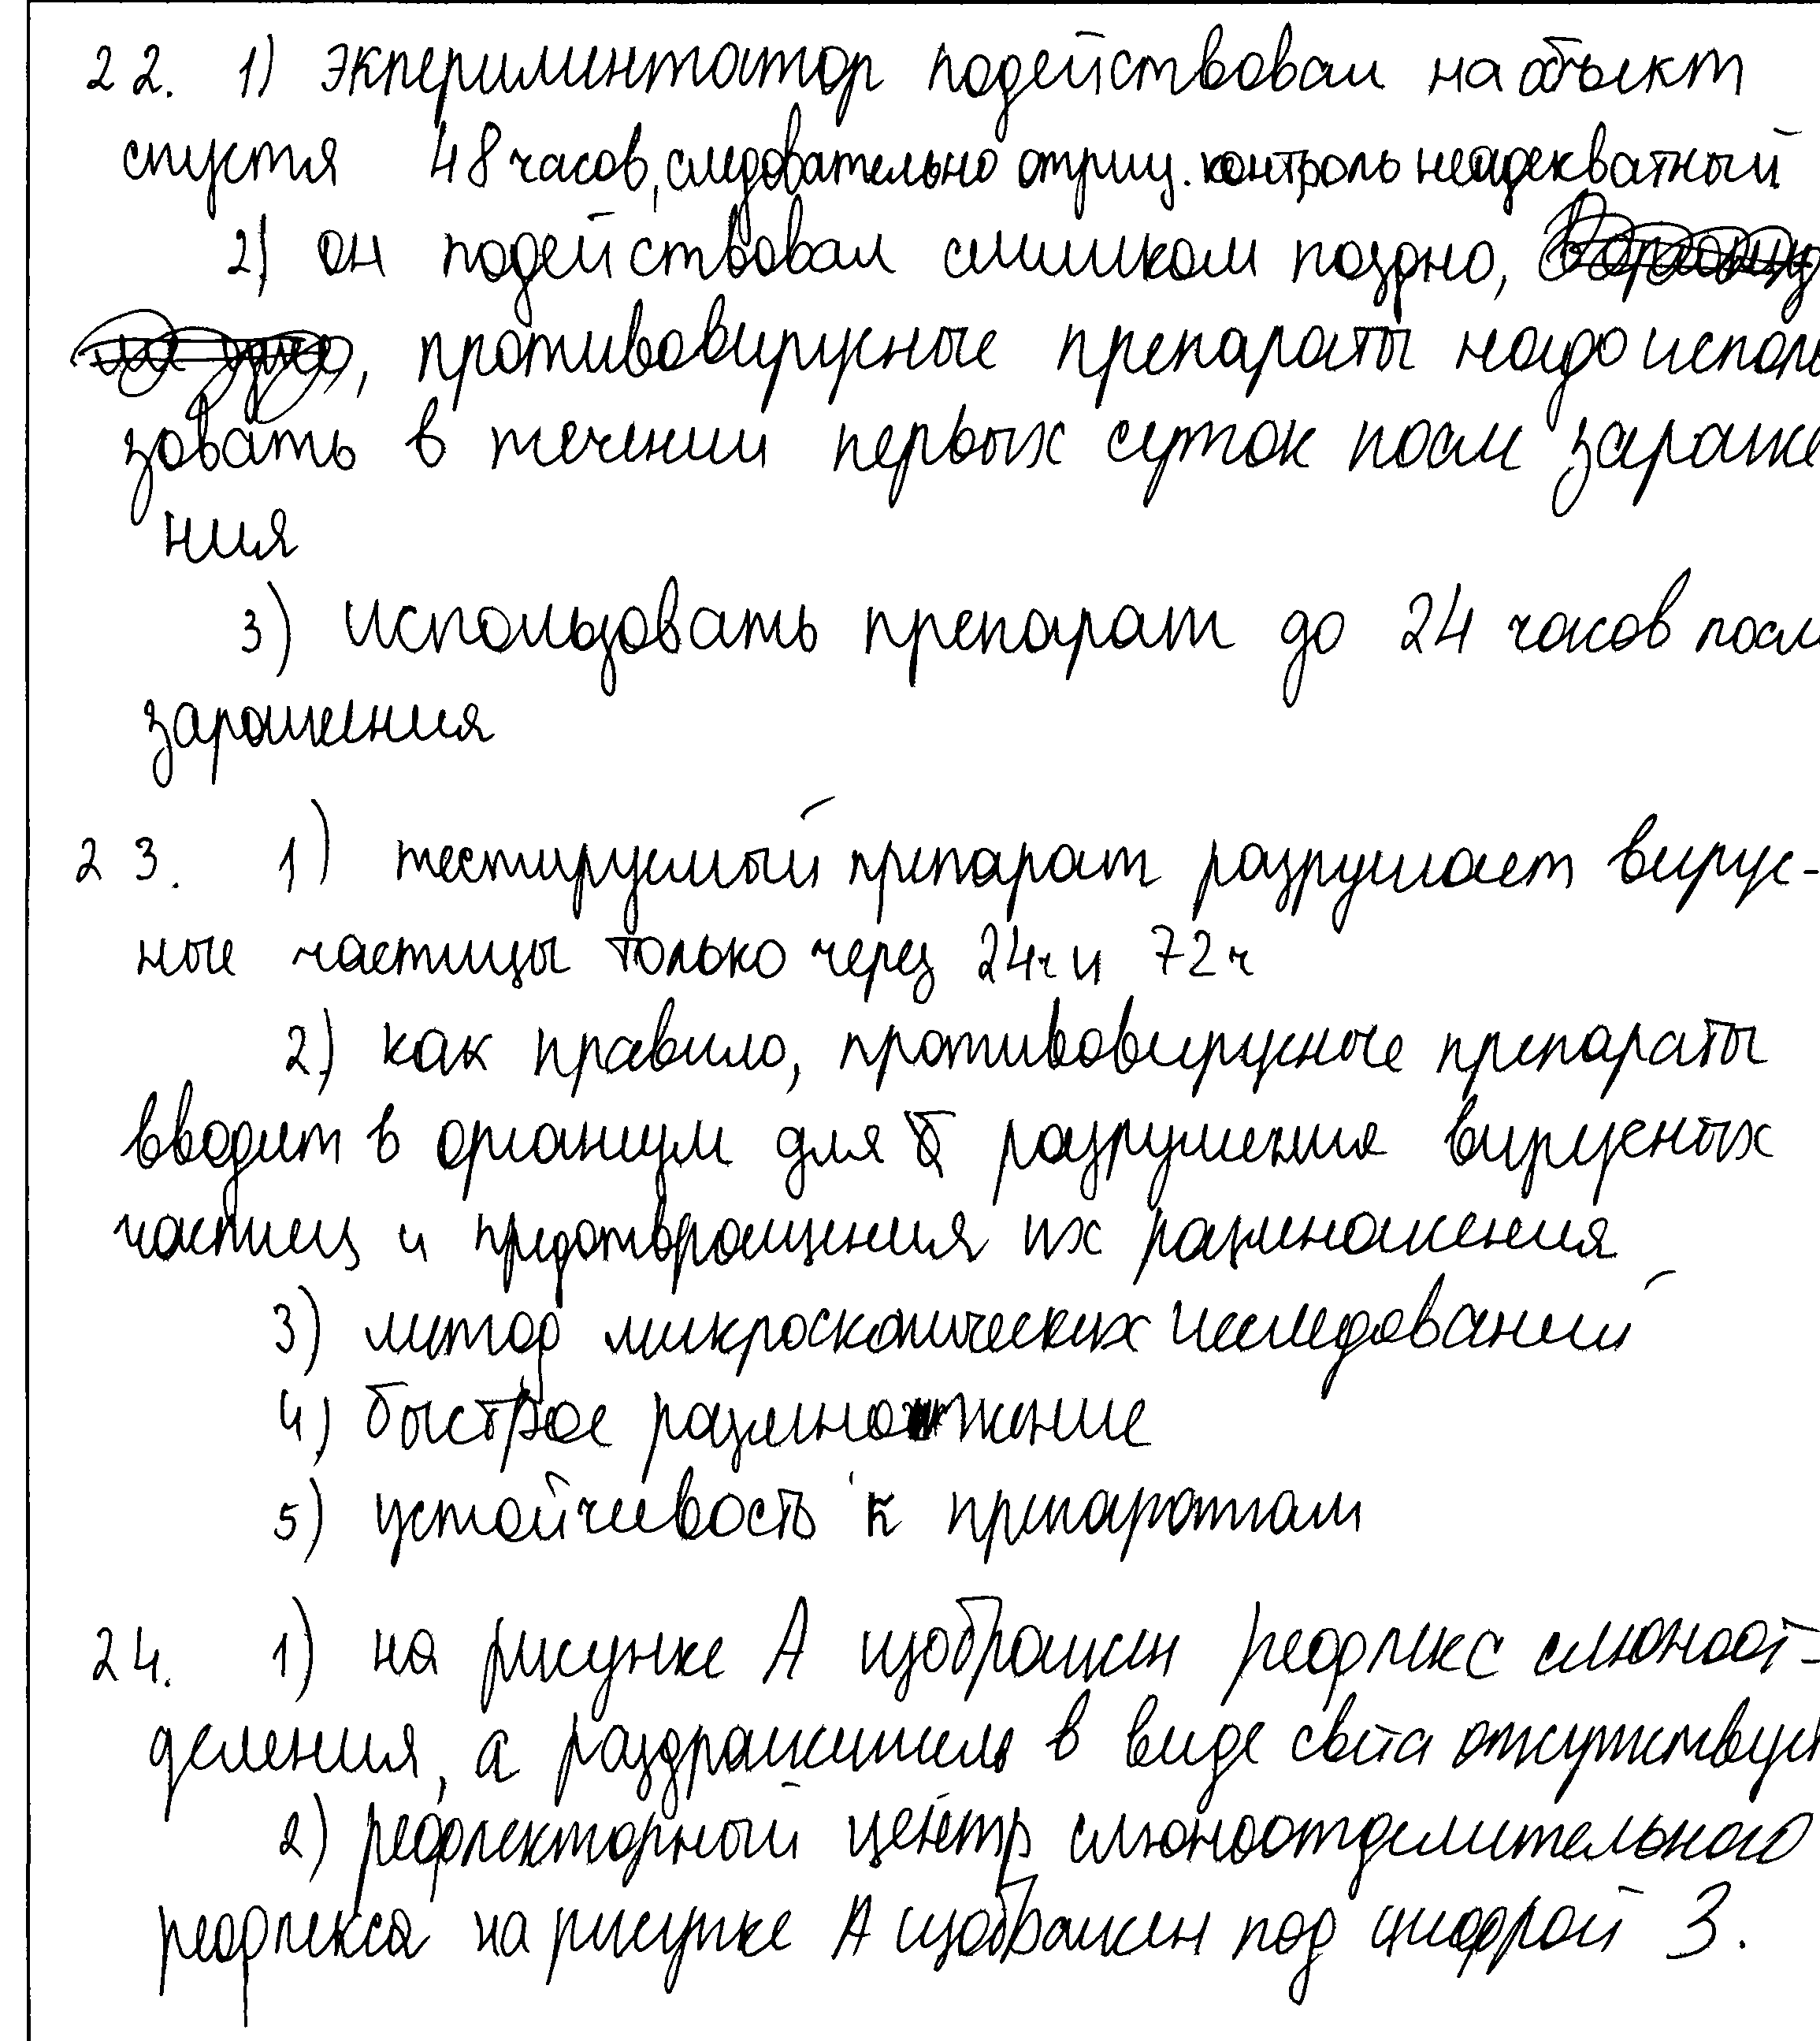 22. 1) экперименттатор подействовал на объект
спустя 48 часов, следовательно отриц. контроль неадекватный
2) он подействовал слишком поздно,
, противовирусные препараты надо исполь
зовать в течении первых суток после зараже
ния
3) использовать препарат до 24 часов после
заражения
23. 1) тестируемый препарат разрушает вирус-
ные частицы только через 24ч и 72ч
2) как правило, противовирусные препараты
вводят в организм для разрушения вирусных
частиц и предотвращения их размножения
3) метод микроскопических исследований
4) быстрое размножение
5) устойчивость к препаратам
24. 1) на рисунке А изображен рефлекс слюноот-
деления, а раздражитель в виде света отсутствует
2) рефлекторный центр слюноотделительного
рефлекса на рисунке А изображен под цифрой 3.